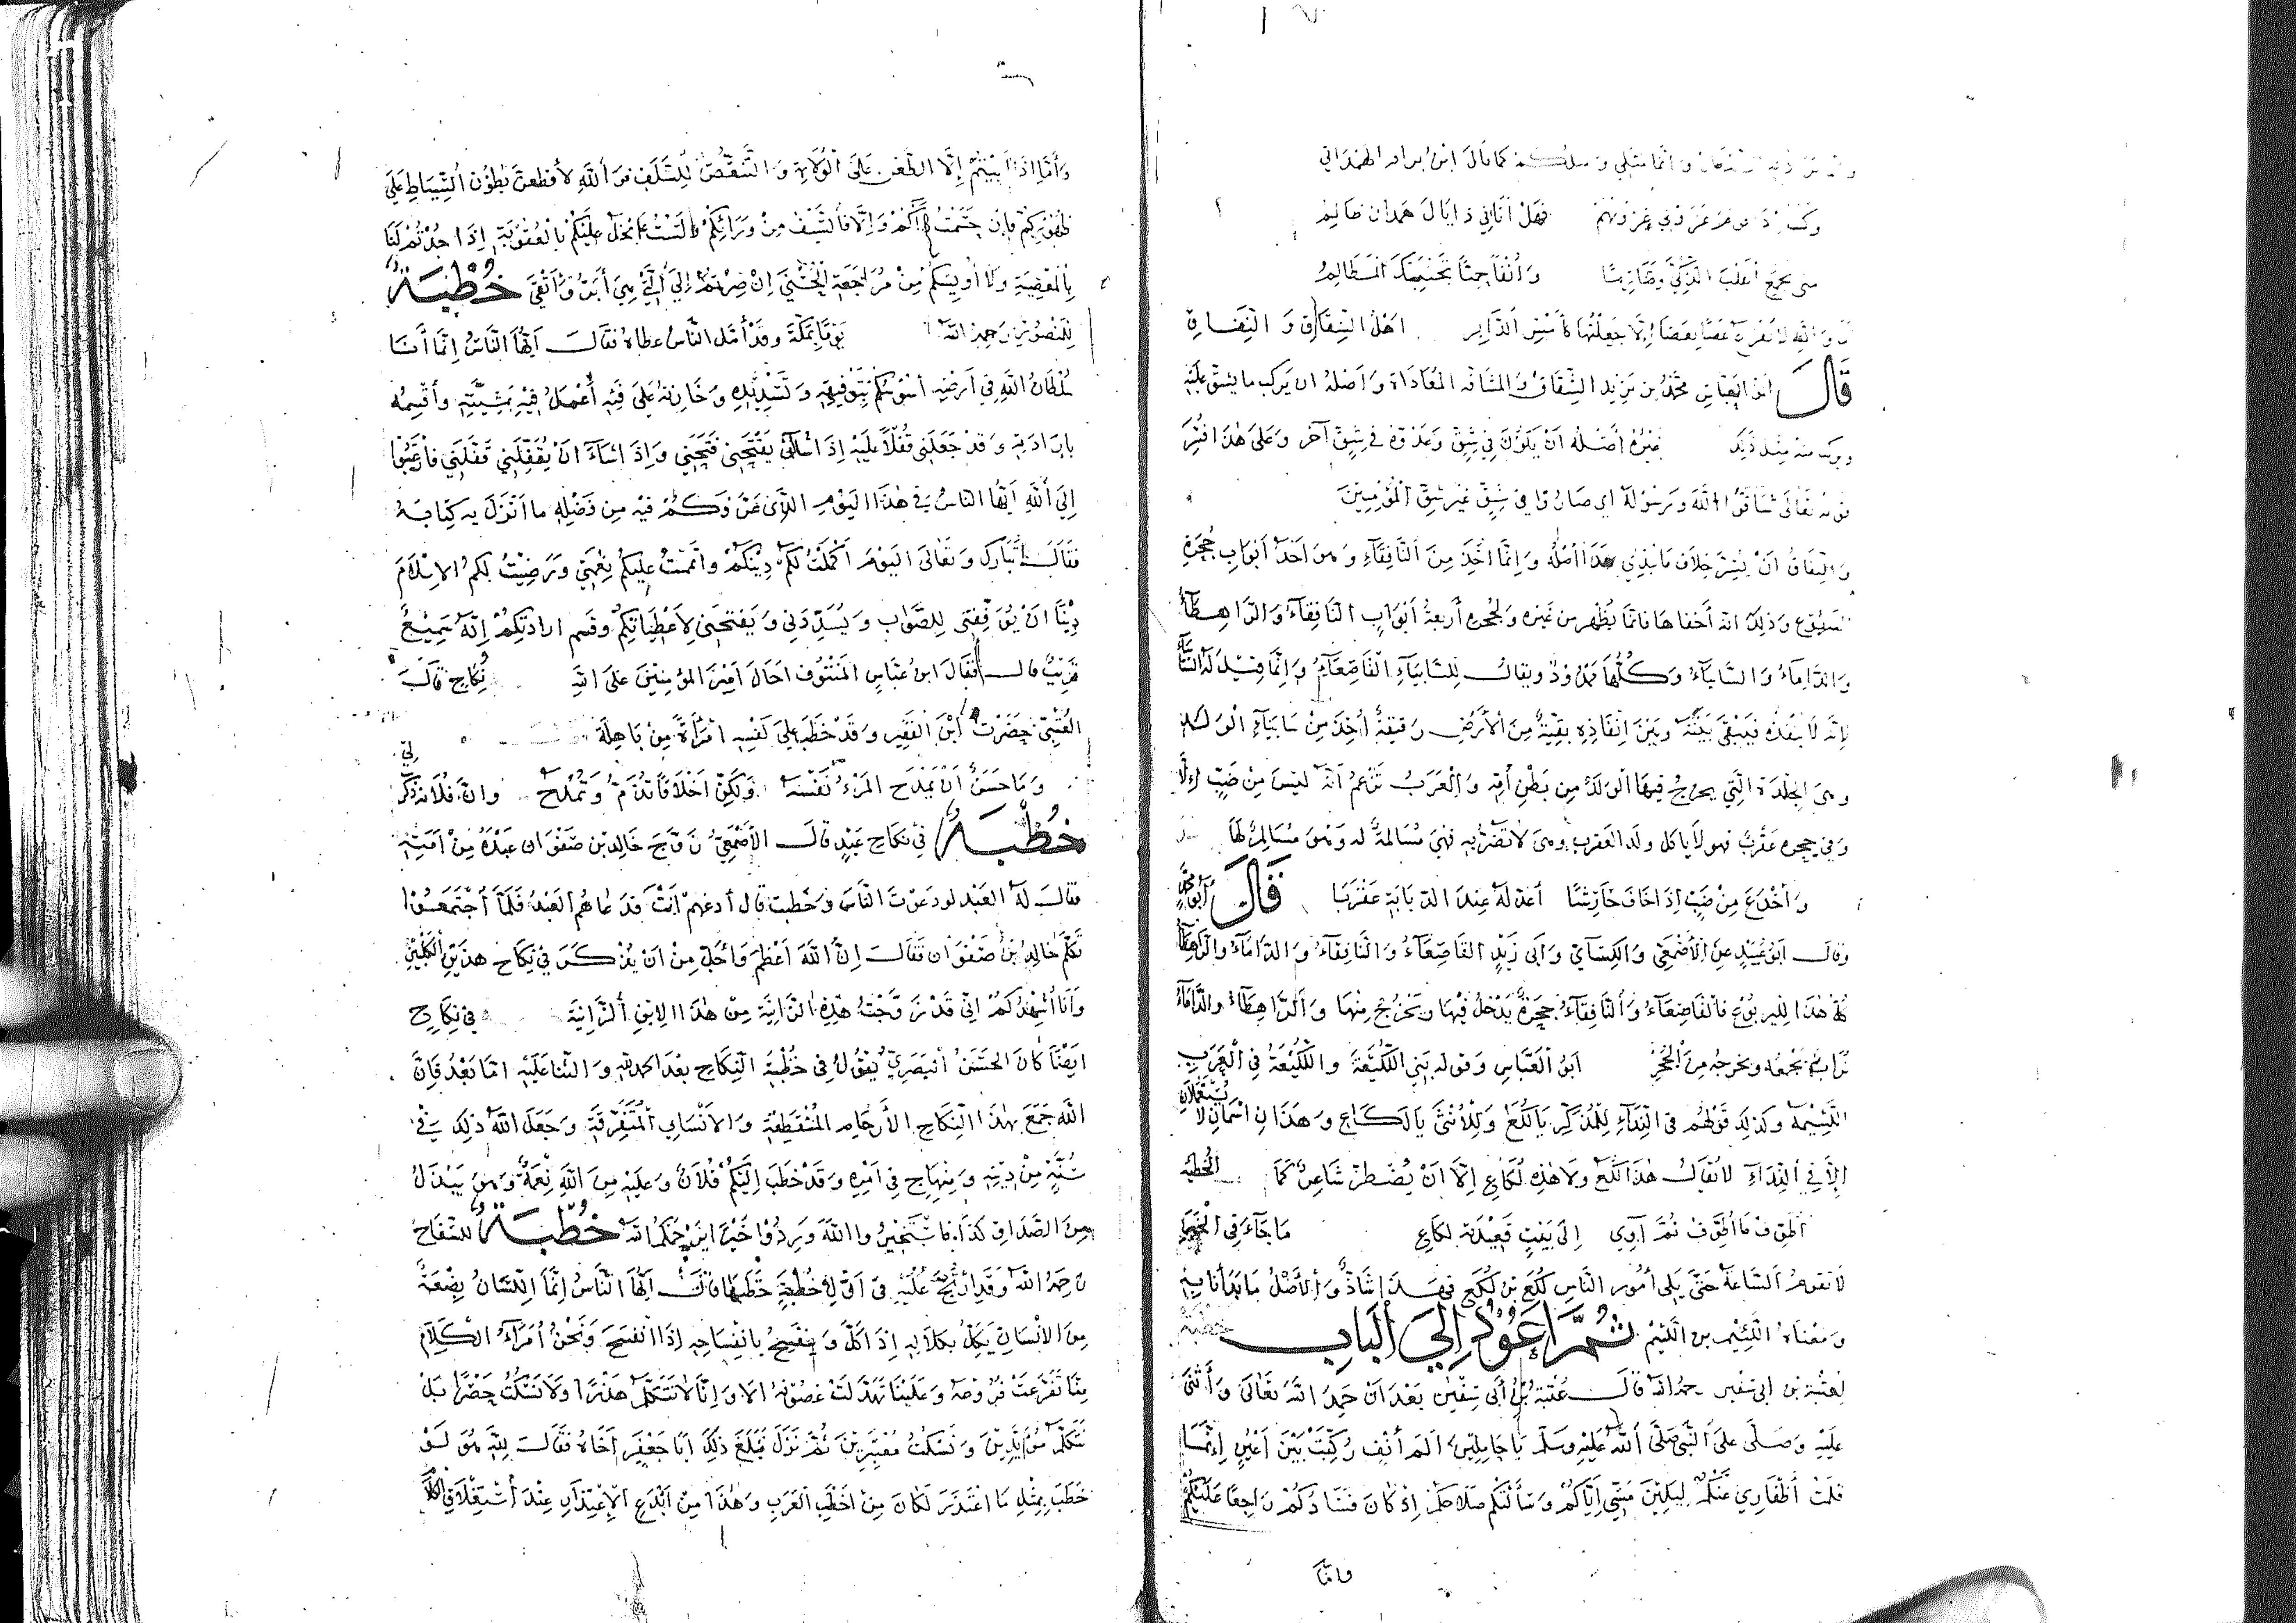 وانما مثلي و كما قال ابن براد الهمداني
وكنت اذا قوم غزوني غزوتهم فهل انا في ذا يال همدان ظالم
متى تجمع القلب الذكي وصارما وأنفا حميا تجتنبك المظالم
اهل الشقاق و النفاق
قال ابو العباس محمد بن يزيد الشقاق والمشاقه المعاداة وأصله ان يركب ما يشق عليه
ويركب منه مثل ذلك غيره أصله أن يكون في شق وعدوه في شق آخر وعلى هذا
قوله تعالى شاقوا الله ورسوله اي صاروا في شق غير شق المؤمنين
والنفاق أن يسر خلاف ما يبدي هذا أصله وإنما اخذ من النافقاء وهو احد أبواب جحرة
اليربوع وذلك انه أخفاها فانما يظهر من غيره ولجحره أربعة أبواب النافقاء والراهطاء
والداماء والسابياء وكلها ممدود ويقال للسابياء القاصعاء وإنما قيل له السابياء
لانه لا ينفذه فيبقى بينه وبين إنفاذه بقية من الأرض رقيقة أخذ من سابياء الولد
وهي الجلدة التي يخرج فيها الولد من بطن أمه والعرب تزعم أنه ليس من ضب إلا
وفي جحره عقرب فهو لا يأكل ولد العقرب وهي لا تضر به فهي مسالمة له وهو مسالم لها
وأخدع من ضب إذا خاف حارشا أعد له عند الذبابة عقربا قال أبو
وقال ابو عبيد عن الأصمعي والكسائي وأبي زيد القاصعاء والنافقاء والداماء والراهطاء
كله هذا لليربوع فالقاصعاء والنافقاء جحرة يدخل فيها ويخرج منها والراهطاء والداماء
تراب يجمعه ويخرجه من الجحر ابو العباس وقوله بني اللكيعة واللكيعة في العرب
اللئيمة وكذلك قولهم في النداء للمذكر يا لكع وللأنثى يا لكاع وهذان اسمان لا يستعملان
إلا في النداء لا تقال هذا لكع ولا هذه لكاع إلا أن يضطر شاعر كما الحطيئة
أطوف ما أطوف ثم آوي إلى بيت قعيدته لكاع ما جاء في الخبر
لا تقوم الساعة حتى يلي أمور الناس لكع بن لكع فهذا شاذ والأصل ما بدأنا به
ومعناه اللئيم بن اللئيم ثم أعود إلى الباب خطبة
لعتبة بن ابي سفين رحمه الله قال عتبة بن أبي سفين بعد ان حمد الله تعالى وأثنى
عليه وصلى على النبي صلى الله عليه وسلم يا حاملين الم أنف ركبت بين أعين إنما
قلمت أظفاري عنكم ليلين مسي اياكم وسألتكم صلاحكم إذ كان فسادكم راجعا عليكم
واما
وأما إذ أبيتم إلا الطعن على الولاة والتنقص للسلف فوالله لأقطعن بطون السياط على
ظهوركم فان حسمت أداكم وإلا فالسيف من ورائكم ولست أبخل عليكم بالعقوبة إذا جدتم لنا
بالمعصية ولا أويسكم من مراجعة الحسنى إن صرتم إلى التي هي أبر وأتقى خطبة
للمنصور رحمه الله يوما بمكة وقد أمل الناس عطاه فقال أيها الناس إنما أنا
سلطان الله في ارضه أسوسكم بتوفيقه وتسديده وخازنه على فيه أعمل فيه بمشيته وأقسمه
بارادته وقد جعلني قفلا عليه إذا شاء ان يفتحني فتحني وإذا شاء ان يقفلني قفلني فارغبوا
إلى الله أيها الناس في هذا اليوم الذي عرفكم فيه من فضله ما أنزل به كتابه
فقال تبارك وتعالى اليوم أكملت لكم دينكم وأتممت عليكم نعمتي ورضيت لكم الاسلام
دينا ان يوفقني للصواب ويسددني ويفتحني لأعطياتكم وقسم ارادتكم إنه سميع
قريب قال فقال ابن عباس المنتوف احال أمير المؤمنين على الله نكاح قال
العتبي حضرت ابن الفقير وقد خطب على نفسه امرأة من باهلة
وما حسن أن يمدح المرء نفسه ولكن أخلاقا تذم وتمدح وان فلانة ذكرت لي
خطبة في نكاح عبد قال الأصمعي زوج خالد بن صفوان عبده من أمته
فقال له العبد لو دعوت الناس وخطبت قال أدعهم انت فدعاهم العبد فلما أجتمعوا
تكلم خالد بن صفوان فقال إن الله أعظم وأجل من أن يذكر في نكاح هذين الكلبين
وأنا أشهدكم اني قد زوجت هذه الزانية من هذا الابن الزانية في نكاح
ايضا كان الحسن البصري يقول في خطبة النكاح بعد الحمد لله والثنا عليه اما بعد فان
الله جمع بهذا النكاح الأرحام المنقطعة والانساب المتفرقة وجعل الله ذلك في
سنة من دينه ومنهاج في أمره وقد خطب إليكم فلان وعليه من الله نعمة وهو يبذل
من الصداق كذا فاستخيروا الله وردوا خيرا يرحمكم الله خطبة للسفاح
رحمه الله وقد ارتج عليه في أول خطبة خطبها فقال أيها الناس إنما اللسان بضعة
من الانسان يكل بكلاله إذا كل وينفسح بانفساحه إذا انفسح ونحن أمراء الكلام
منا تفرعت فروعه وعلينا تهدلت غصونه ألا وإنا لا نتكلم هذرا ولا نسكت حصرا بل
نتكلم مرشدين ونسكت معتبرين ثم نزل فبلغ ذلك أبا جعفر أخاه فقال لله هو لو
خطب بمثل ما اعتذر لكان من اخطب العرب وهذا من أبدع الاعتذار عند أستغلاق الكلام